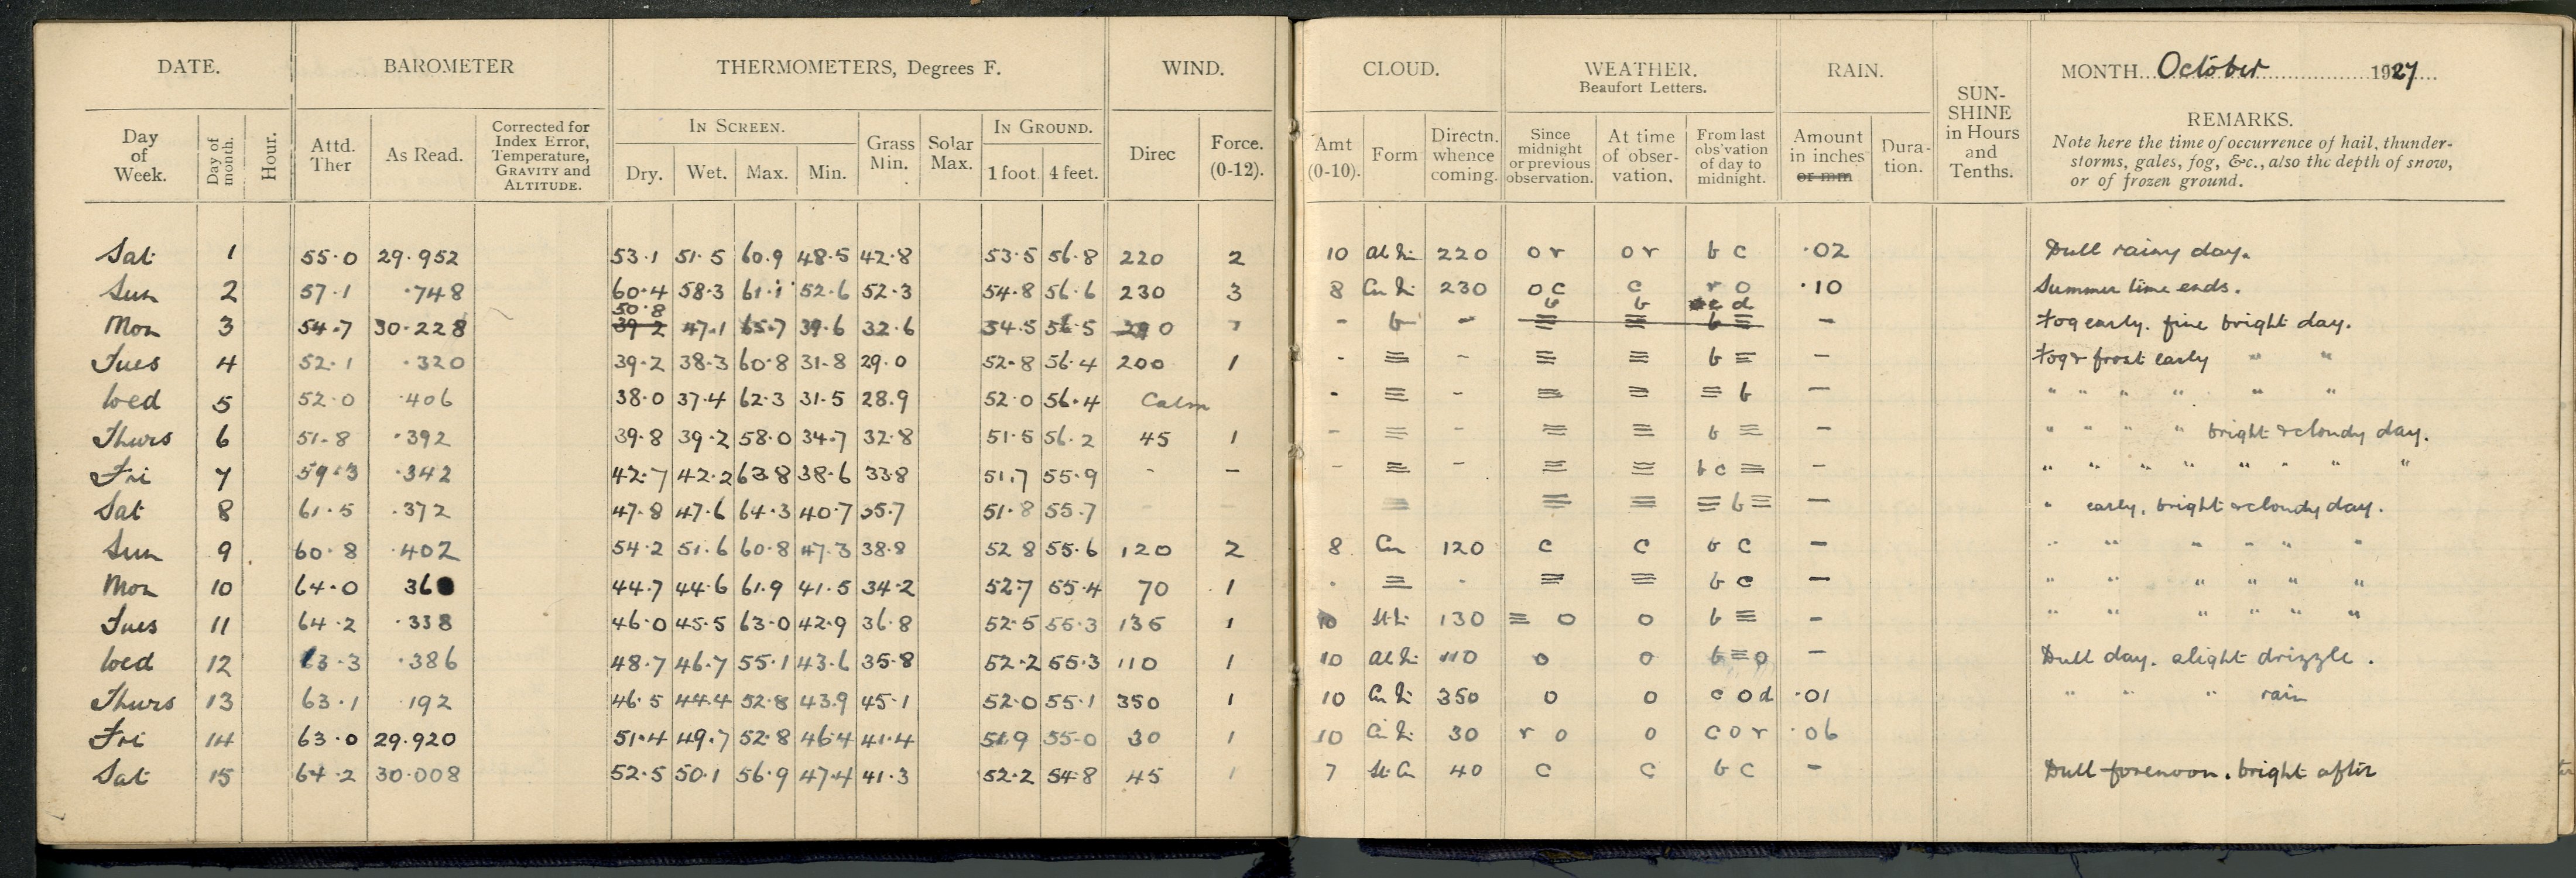 DATE. BAROMETER THERMOMETERS, Degrees F. WIND. CLOUD. WEATHER. Beaufort Letters. RAIN. SUN-SHINE in Hours and Tenths. MONTH October 1927
Day of Week. Day of month. Hour. Attd. Ther As Read. Corrected for Index Error, Temperature, GRAVITY and ALTITUDE. IN SCREEN. Dry. Wet. Max. Min. Grass Min. Solar Max. IN GROUND. 1 foot. 4 feet. Direc Force. (0-12). Amt (0-10). Form Directn. whence coming. Since midnight or previous observation. At time of obser-vation. From last obs'vation of day to midnight. Amount in inches or mm Dura-tion. REMARKS.
Note here the time of occurrence of hail, thunder-
storms, gales, fog, &c., also the depth of snow,
or of frozen ground.
Sat 1 55.0 29.952 53.1 51.5 60.9 48.5 42.8 53.5 56.8 220 2 10 220 o r o r b c .02 Dull rainy day.
Sun 2 57.1 .748 60.4 58.3 61.1 52.6 52.3 54.8 56.6 230 3 8 230 o c c r o .10 Summer time ends.
50.8 b b c d
Mon 3 54.7 30.228 39.2 47.1 65.7 39.6 32.6 54.5 56.5 0 - b - ≡ ≡ b ≡ - Fog early. fine bright day.
Tues 4 52.1 .320 39.2 38.3 60.8 31.8 29.0 52.8 56.4 200 1 - ≡ - ≡ ≡ b ≡ - Fog & frost early " "
Wed 5 52.0 .406 38.0 37.4 62.3 31.5 28.9 52.0 56.4 Calm - ≡ - ≡ ≡ ≡ b - " " " " " "
Thurs 6 51.8 .392 39.8 39.2 58.0 34.7 32.8 51.5 56.2 45 1 - ≡ - ≡ ≡ b ≡ - " " " " bright & cloudy day.
Fri 7 59.3 .342 42.7 42.2 63.8 38.6 33.8 51.7 55.9 - - - ≡ - ≡ ≡ b c ≡ - " " " " " " " "
Sat 8 61.5 .372 47.8 47.6 64.3 40.7 35.7 51.8 55.7 - - ≡ ≡ ≡ ≡ b ≡ - " early, bright & cloudy day.
Sun 9 60.8 .402 54.2 51.6 60.8 47.3 38.8 52.8 55.6 120 2 8 Cu 120 c c b c - " " " " " "
Mon 10 64.0 36 44.7 44.6 61.9 41.5 34.2 52.7 55.4 70 1 - ≡ - ≡ ≡ b c - " " " " " "
Tues 11 64.2 .338 46.0 45.5 63.0 42.9 36.8 52.5 55.3 135 1 10 130 ≡ o o b ≡ - " " " " " "
Wed 12 63.3 .386 48.7 46.7 55.1 43.6 35.8 52.2 55.3 110 1 10 110 o o b ≡ o - Dull day. slight drizzle.
Thurs 13 63.1 192 46.5 44.4 52.8 43.9 45.1 52.0 55.1 350 1 10 350 o o c o d .01 " " " rain
Fri 14 63.0 29.920 51.4 49.7 52.8 46.4 41.4 51.9 55.0 30 1 10 30 r o o c o r .06
Sat 15 64.2 30.008 52.5 50.1 56.9 47.4 41.3 52.2 54.8 45 1 7 St. Cu 40 c c b c - Dull forenoon. bright after